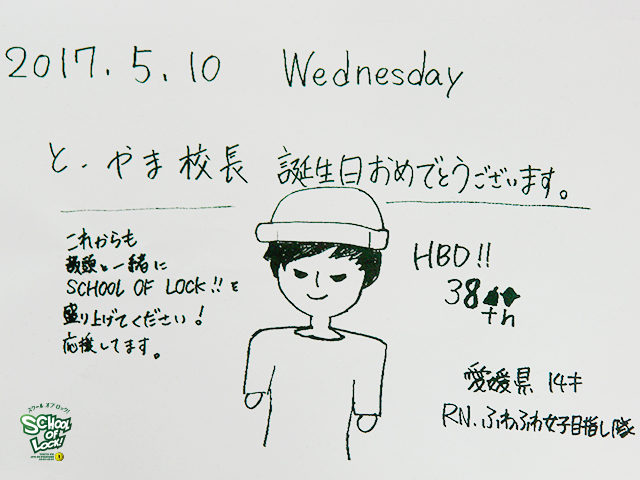 2017.5.10 Wednesday
と.やま校長 誕生日おめでとうございます。
これからも
教頭と一緒に
SCHOOL OF LOCK!!を
盛り上げてください!
応援してます。
HBD!!
38
th
愛媛県 14才
RN.ふわふわ女子目指し隊
スクール オブ ロック!
SCHOOL
OF
LOCK!